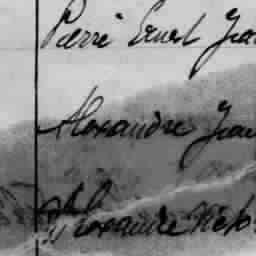 Pierre Ernest Jean
Alexandre Jean
Alexandre